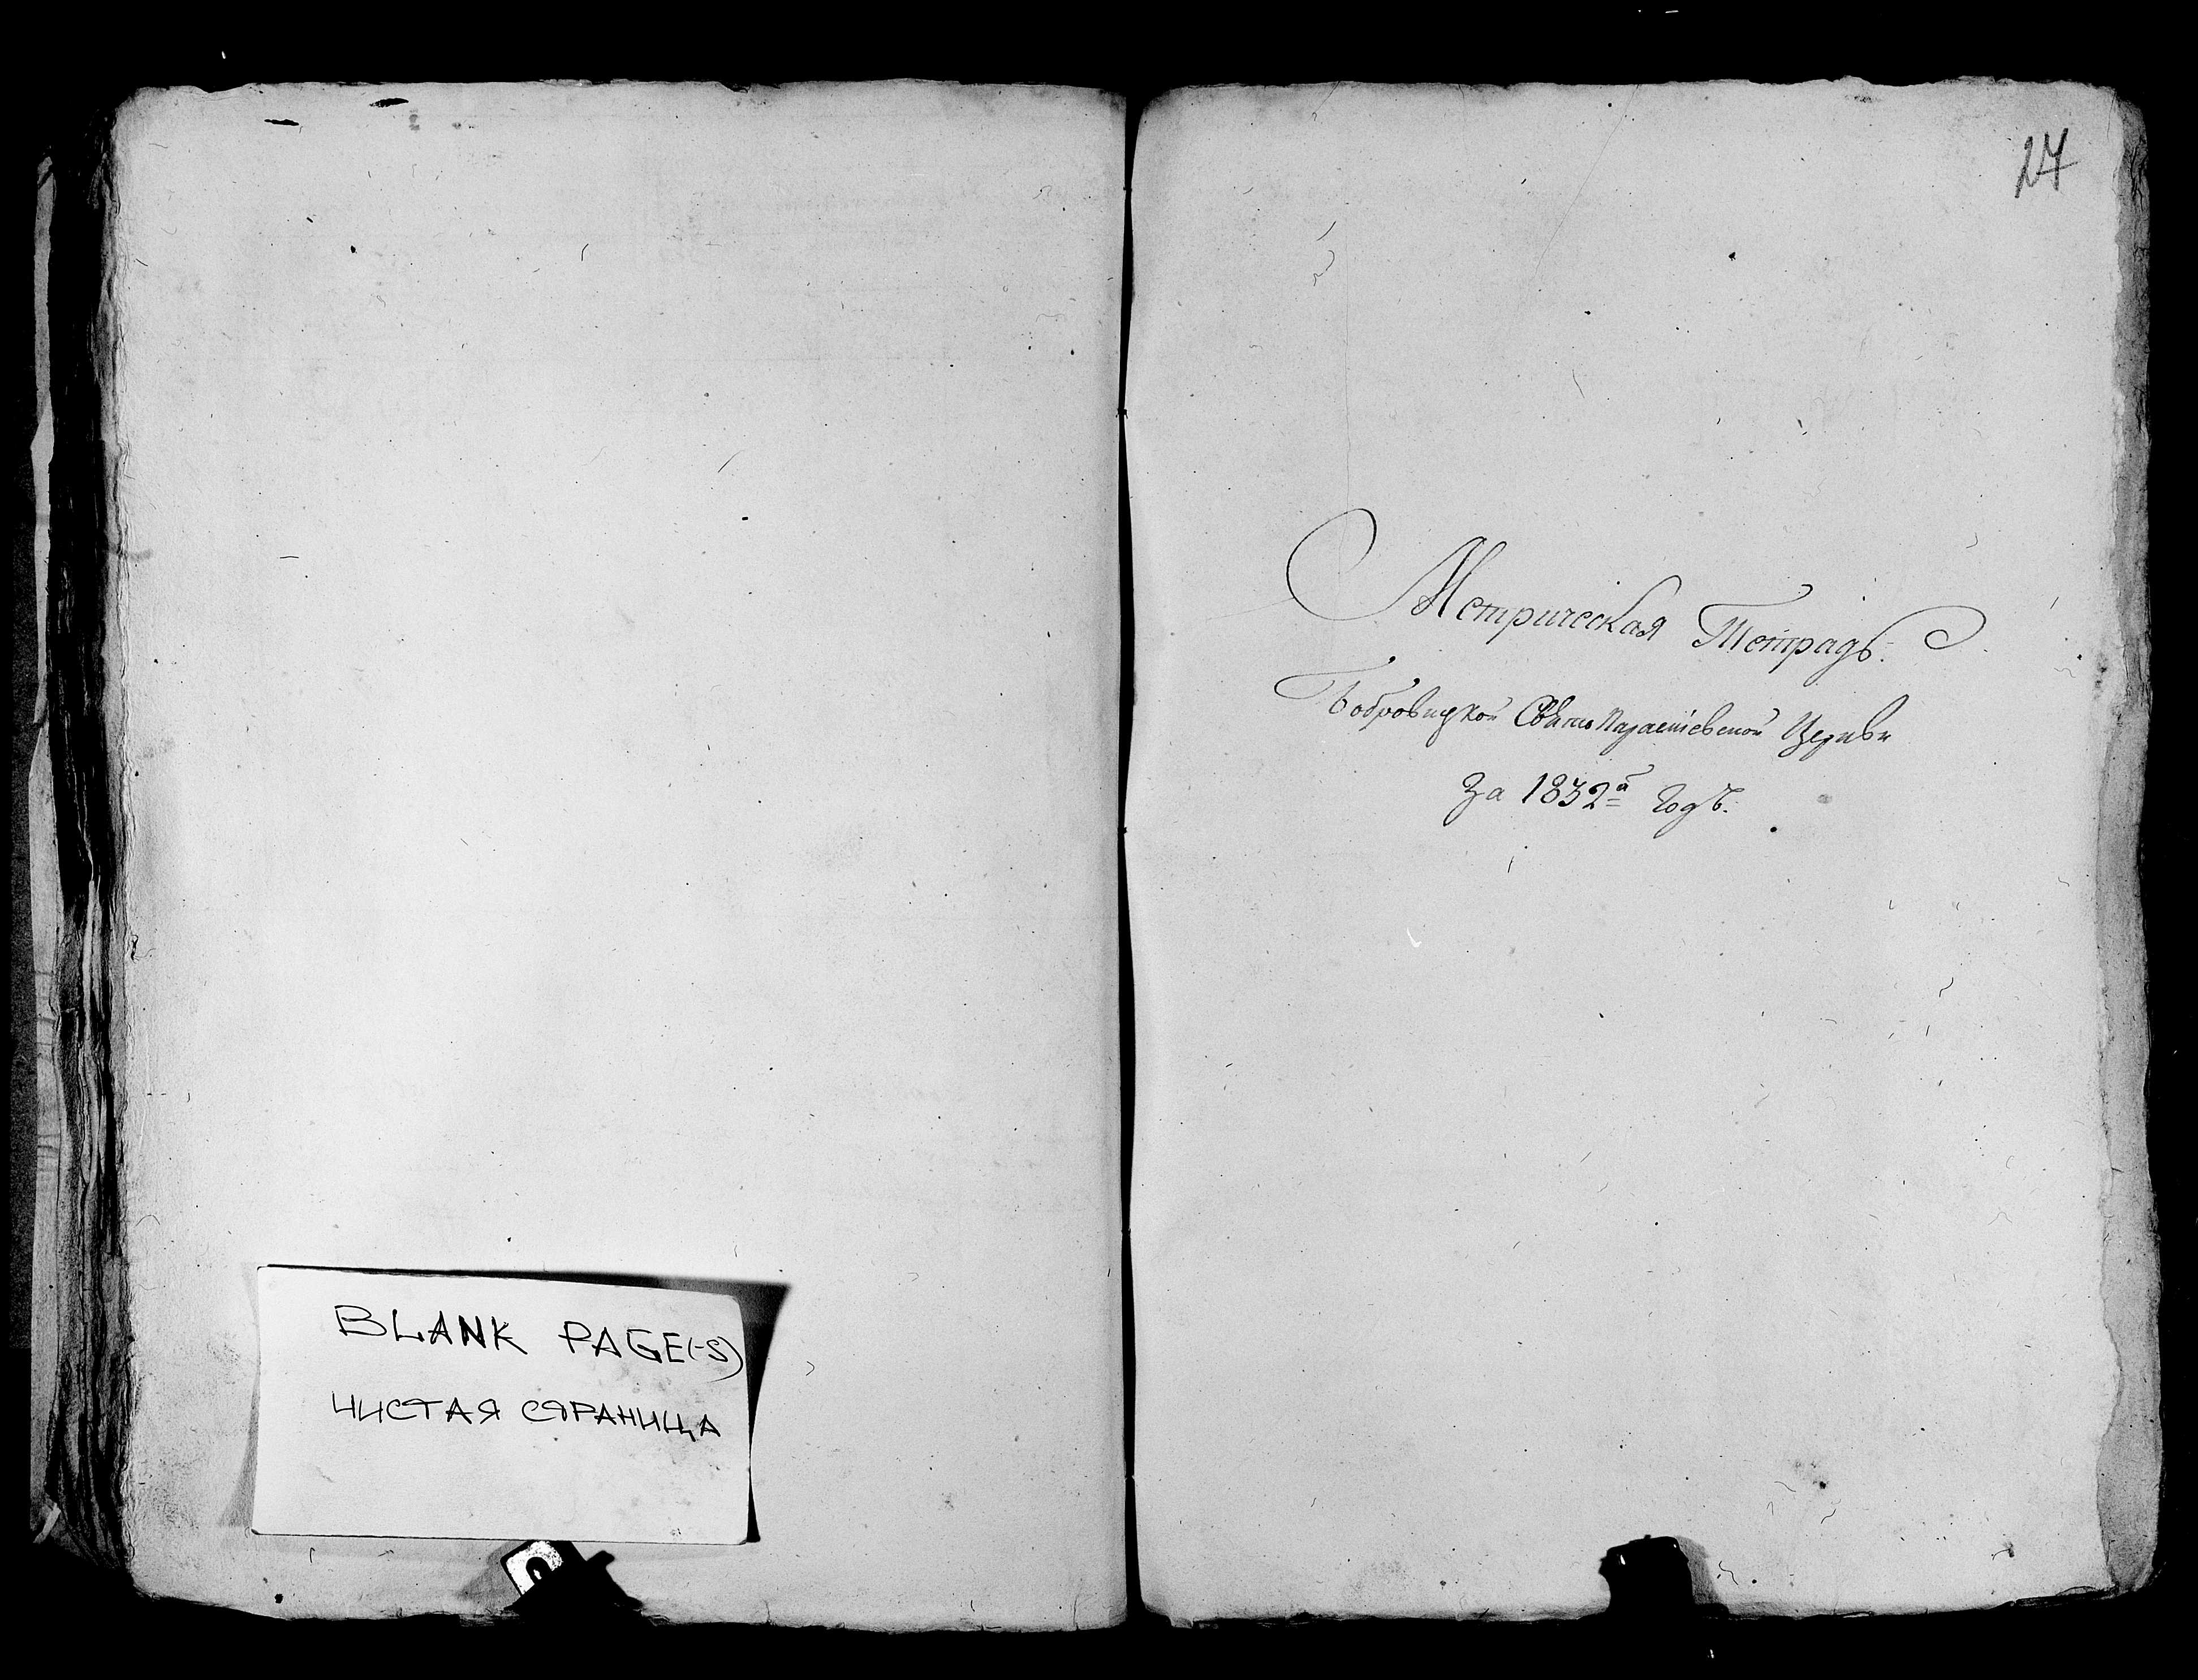 BLANK PAGE(-S)
ЧИСТАЯ СТРАНИЦА
27
Метрическая Тетрадь.
Бобровицкой Свято Параскіевской Церкви
За 1832й Годъ.